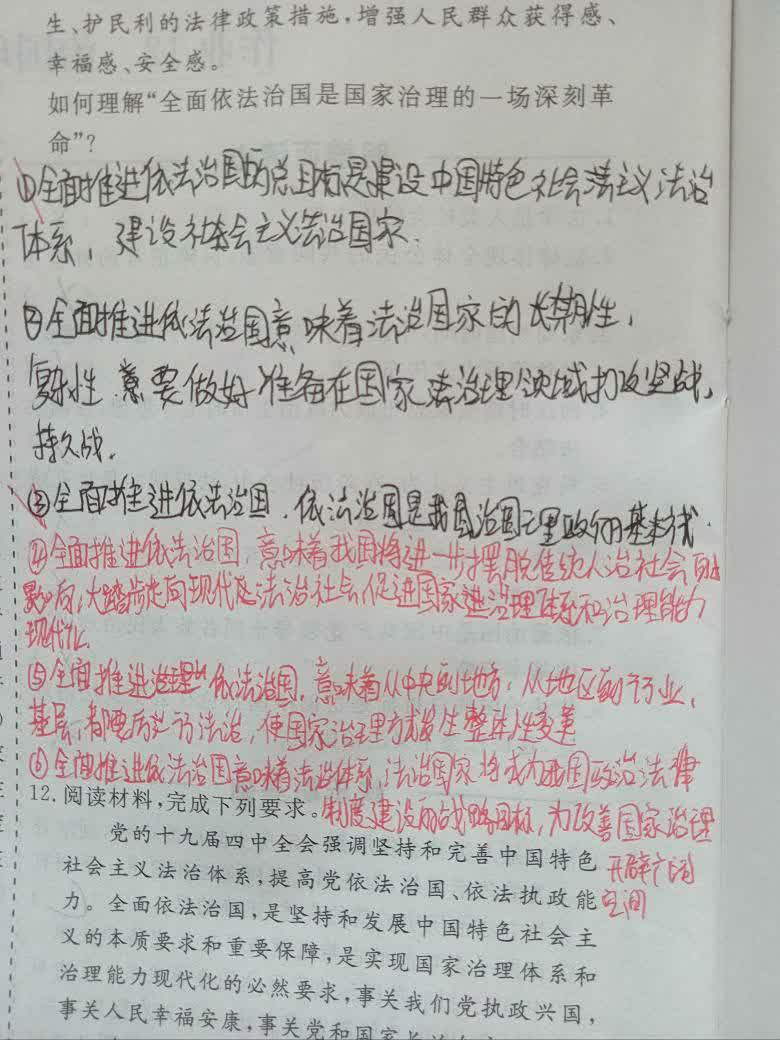 生、护民利的法律政策措施,增强人民群众获得感、
幸福感、安全感。
如何理解“全面依法治国是国家治理的一场深刻革
命”?
①全面推进依法治国的总目标是建设中国特色社会主义法治
体系,建设社会主义法治国家.
②全面推进依法治国意味着法治国家的长期性,
复杂性 意要做好准备在国家治理领域打攻坚战,
持久战.
③全面推进依法治国,依法治国是我国治国理政的基本
④全面推进依法治国,意味着我国将进一步摆脱传统人治社会的
影响,大踏步走向现代法治社会,促进国家治理体系和治理能力
现代化
⑤全面推进依法治国,意味着从中央到地方,从地区到行业、
基层,都要厉行法治,使国家治理方式发生整体性变革
⑥全面推进依法治国意味着法治体系,法治国家将成为我国政治法律
12.阅读材料,完成下列要求。制度建设的战略目标,为改善国家治理
党的十九届四中全会强调坚持和完善中国特色 开辟广阔
社会主义法治体系,提高党依法治国、依法执政能 空间
力。全面依法治国,是坚持和发展中国特色社会主
义的本质要求和重要保障,是实现国家治理体系和
治理能力现代化的必然要求,事关我们党执政兴国,
事关人民幸福安康,事关党和国家长